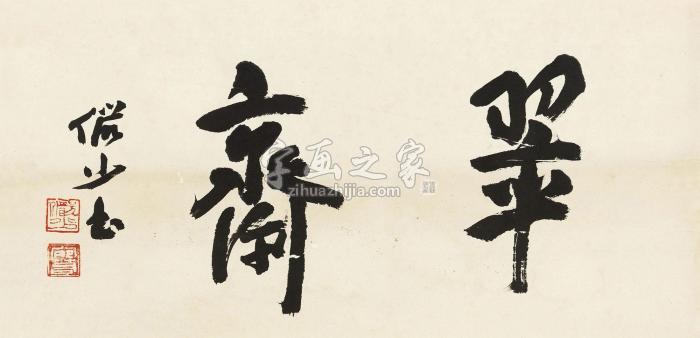 翠齋
儼少书
字画之家
zihuazhijia.com